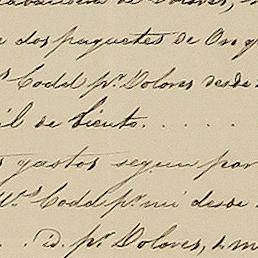 dos paquetes de Oro y
Codd pr. Dolores desde
il de Ciento. . . . .
gastos segun por
Codd pr. mi desde
. . . id. pr. Dolores, á m